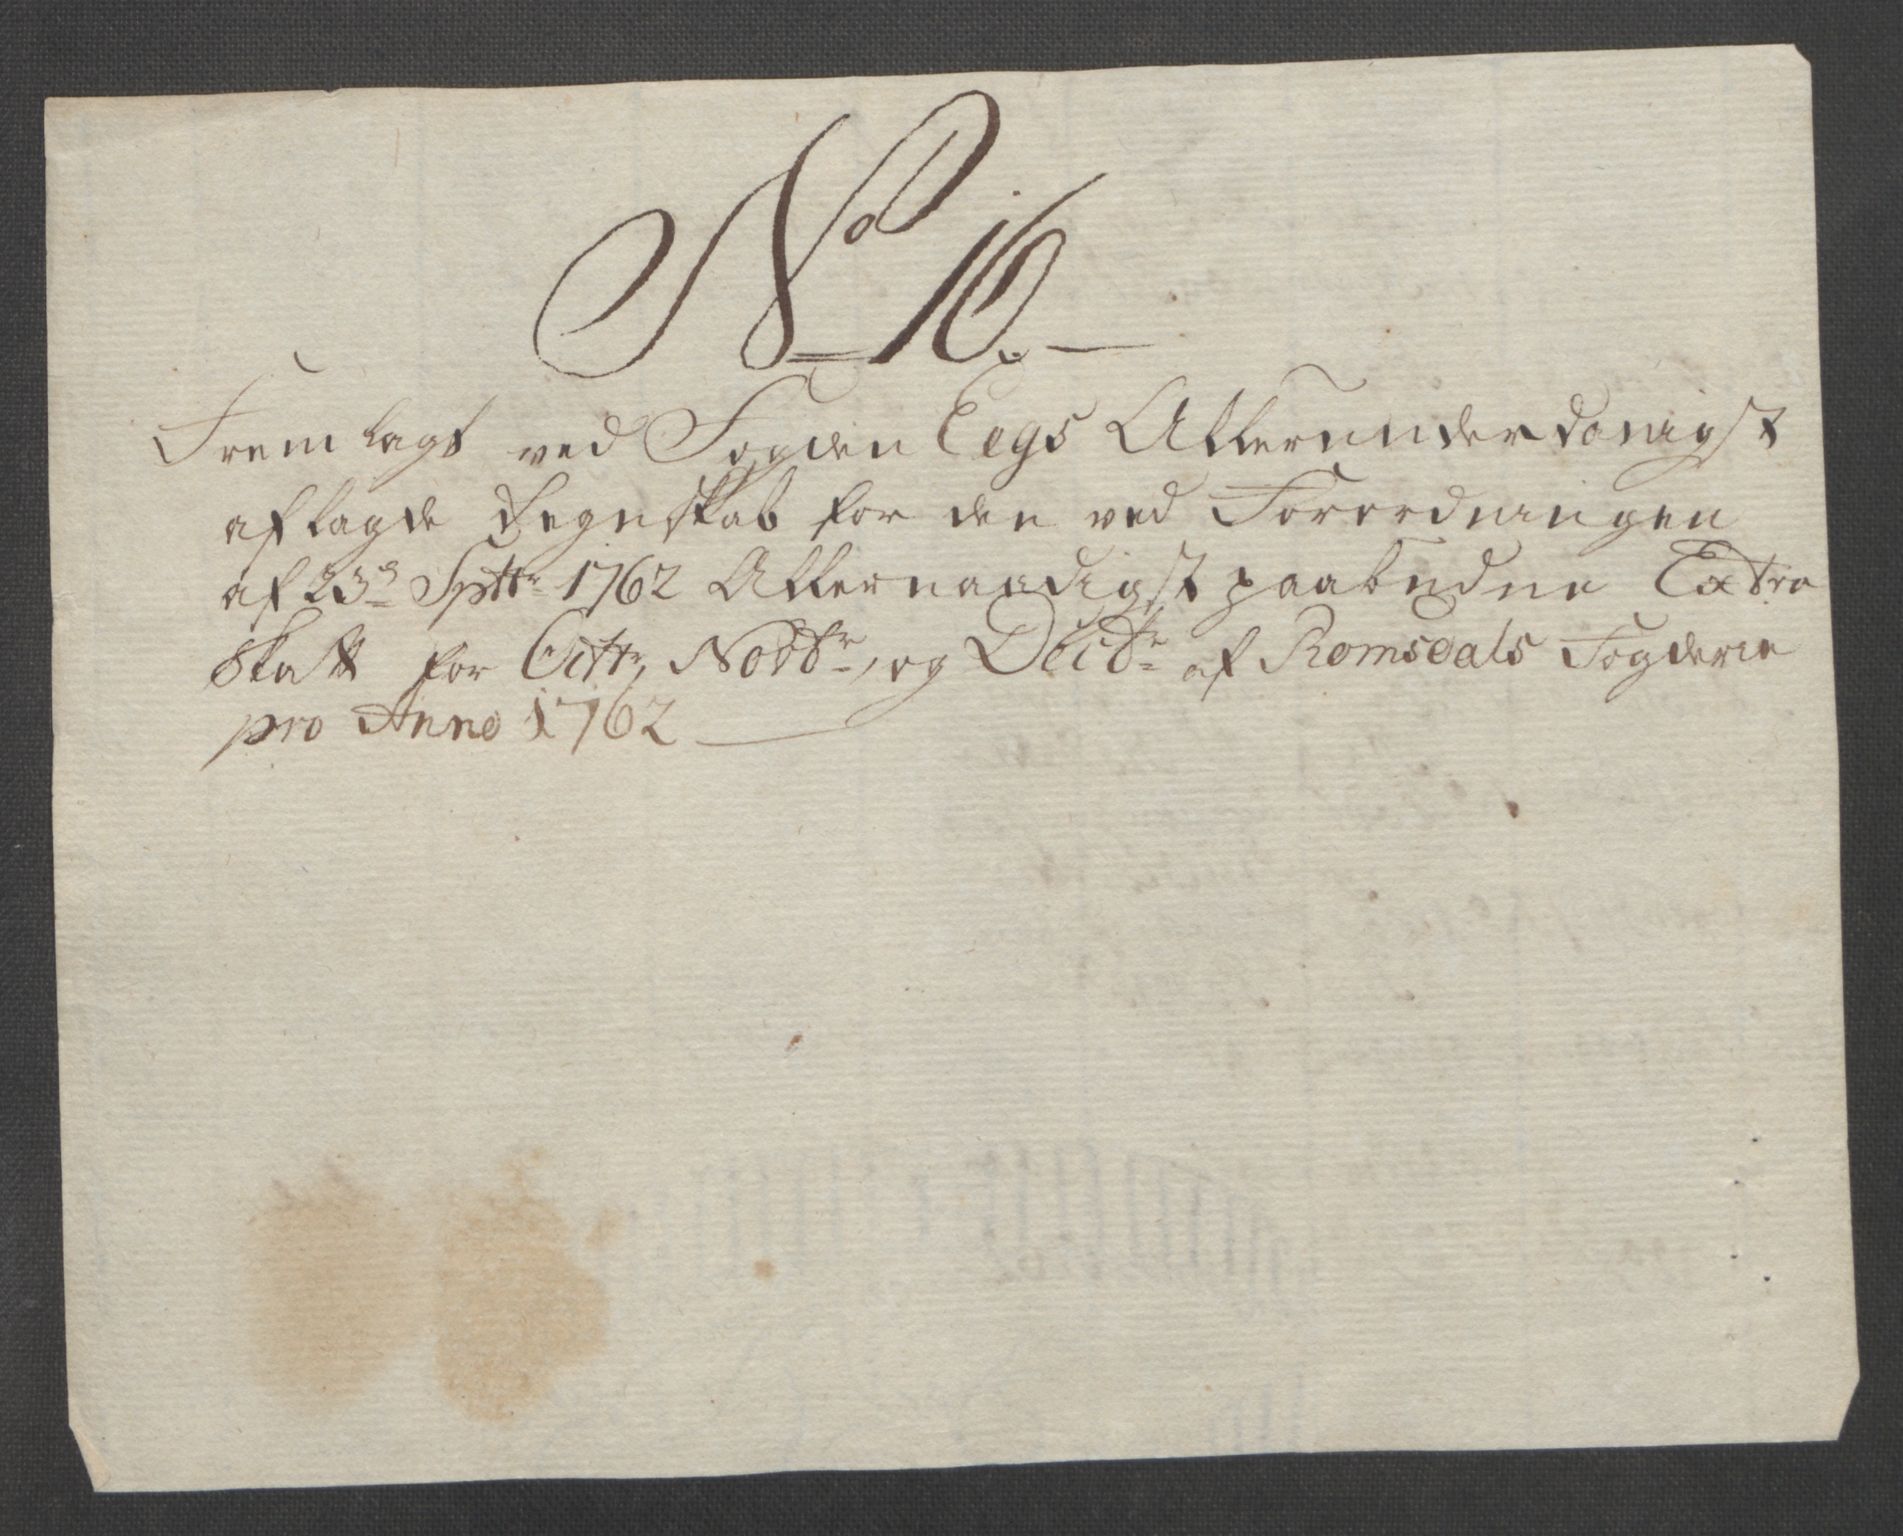 No 16.
Fremlagt ved Fogden Eegs Allerunderdanigst
aflagde Regnskab for den ved Forordningen
af 23de Sptbr 1762 Allernaadigst paabudne Extra
Skatt for Octbr, Novbr, og Decbr af Romsdals Fogderie
pro Anno 1762